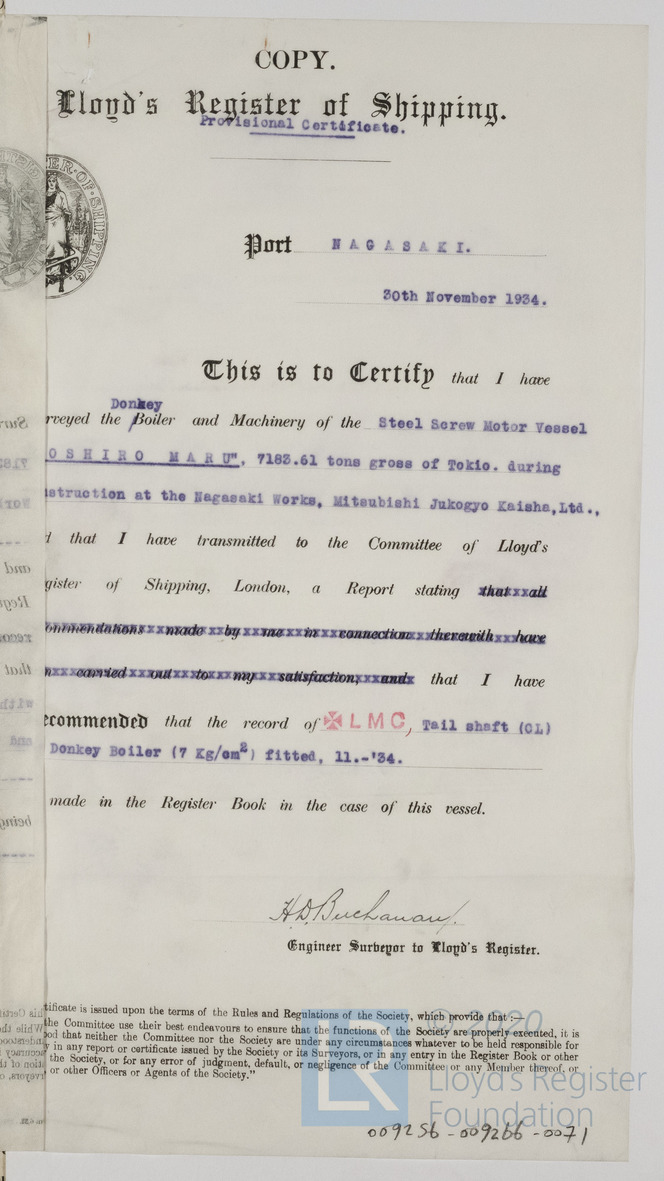 COPY.
Lloyd's Register of Shipping.
Provisional Certificate.
ER·OF·SHIPPING
Port NAGASAKI.
30th November 1934.
This is to Certify that I have
Donkey
rveyed the Boiler and Machinery of the Steel Screw Motor Vessel
OSHIRO MARU", 7183.61 tons gross of Tokio. during
struction at the Nagasaki Works, Mitsubishi Jukogyo Kaisha,Ltd.,
d that I have transmitted to the Committee of Lloyd's
gister of Shipping, London, a Report stating that all
ommendations made by me in connection therewith have
n carried out to my satisfaction, and that I have
ecommended that the record of ✠LMC, Tail shaft (CL)
Donkey Boiler (7 Kg/cm²) fitted, 11.-'34.
made in the Register Book in the case of this vessel.
H.D. Buchanan.
Engineer Surveyor to Lloyd's Register.
tificate is issued upon the terms of the Rules and Regulations of the Society, which provide that :—
the Committee use their best endeavours to ensure that the functions of the Society are properly executed, it is
ood that neither the Committee nor the Society are under any circumstances whatever to be held responsible for
y in any report or certificate issued by the Society or its Surveyors, or in any entry in the Register Book or other
the Society, or for any error of judgment, default, or negligence of the Committee or any Member thereof, or
or other Officers or Agents of the Society."
© 2020
LR
Lloyd's Register
Foundation
009256-009266-0071